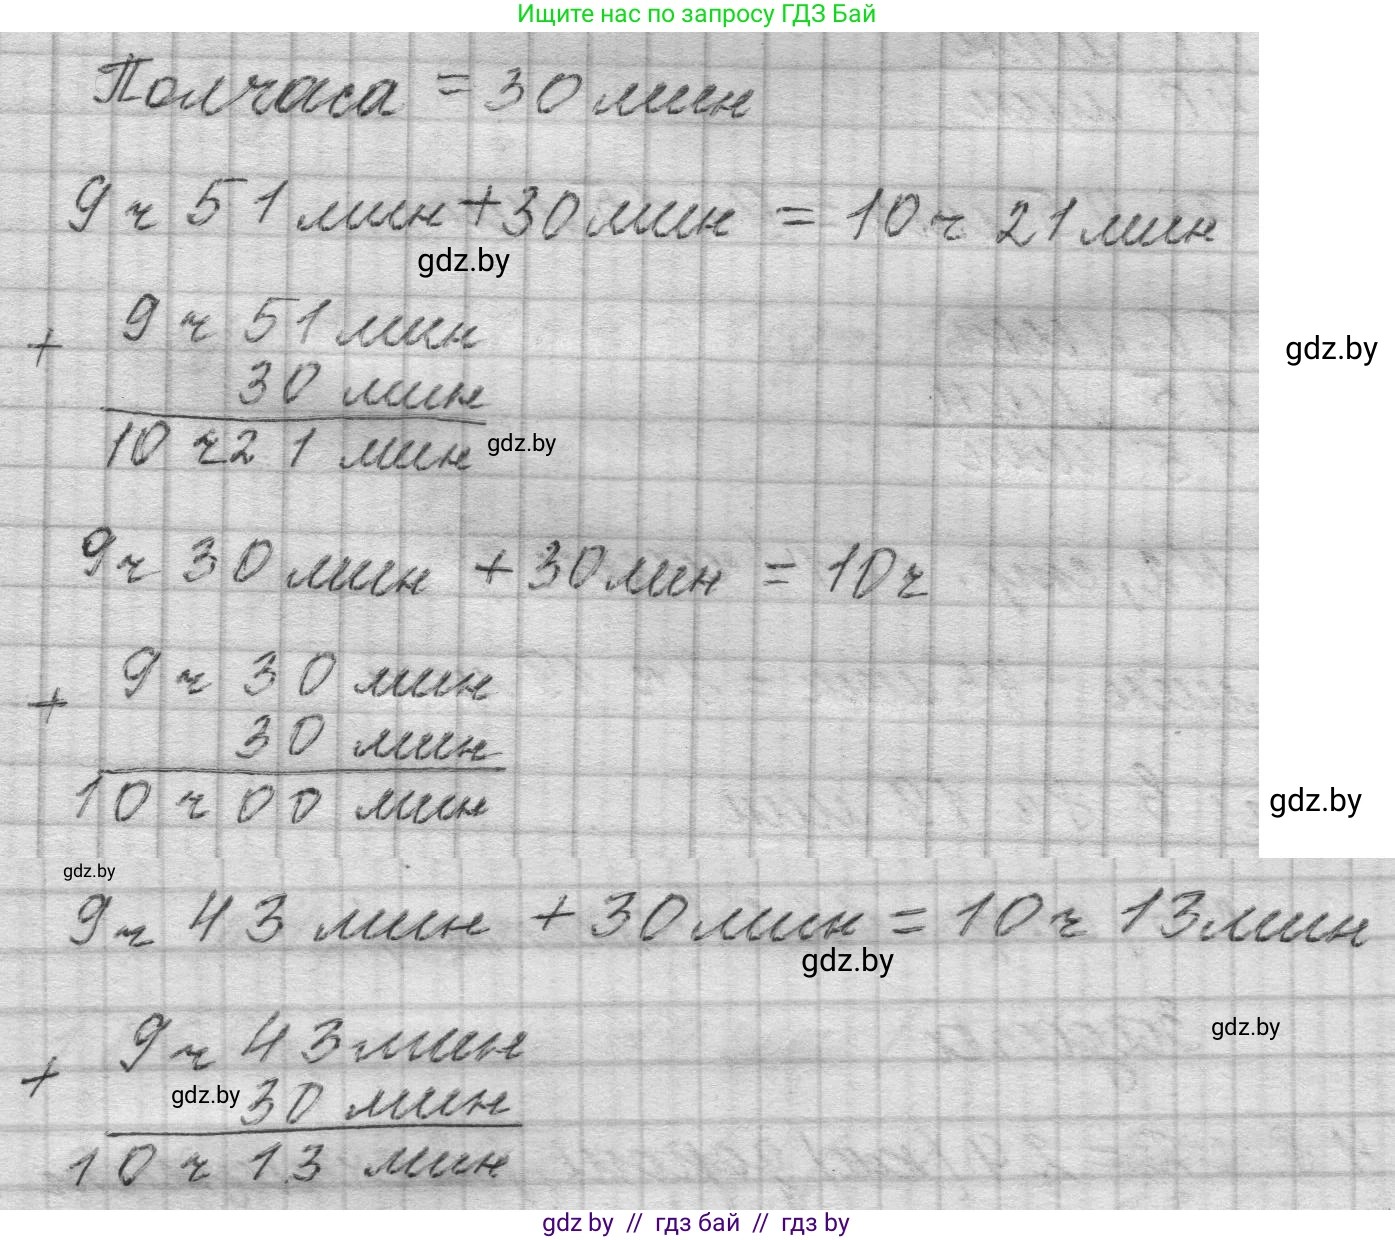 Ищите нас по запросу ГДЗ Бай
Полчаса = 30 мин
9 ч 51 мин + 30 мин = 10 ч 21 мин
gdz.by
9 ч 51 мин
+
gdz.by
30 мин
10 ч 21 мин
gdz.by
9 ч 30 мин + 30 мин = 10 ч
9 ч 30 мин
+
30 мин
10 ч 00 мин
gdz.by
gdz.by
9 ч 43 мин + 30 мин = 10 ч 13 мин
gdz.by
9 ч 43 мин
gdz.by
+
gdz.by
30 мин
10 ч 13 мин
gdz by // гдз бай // гдз by